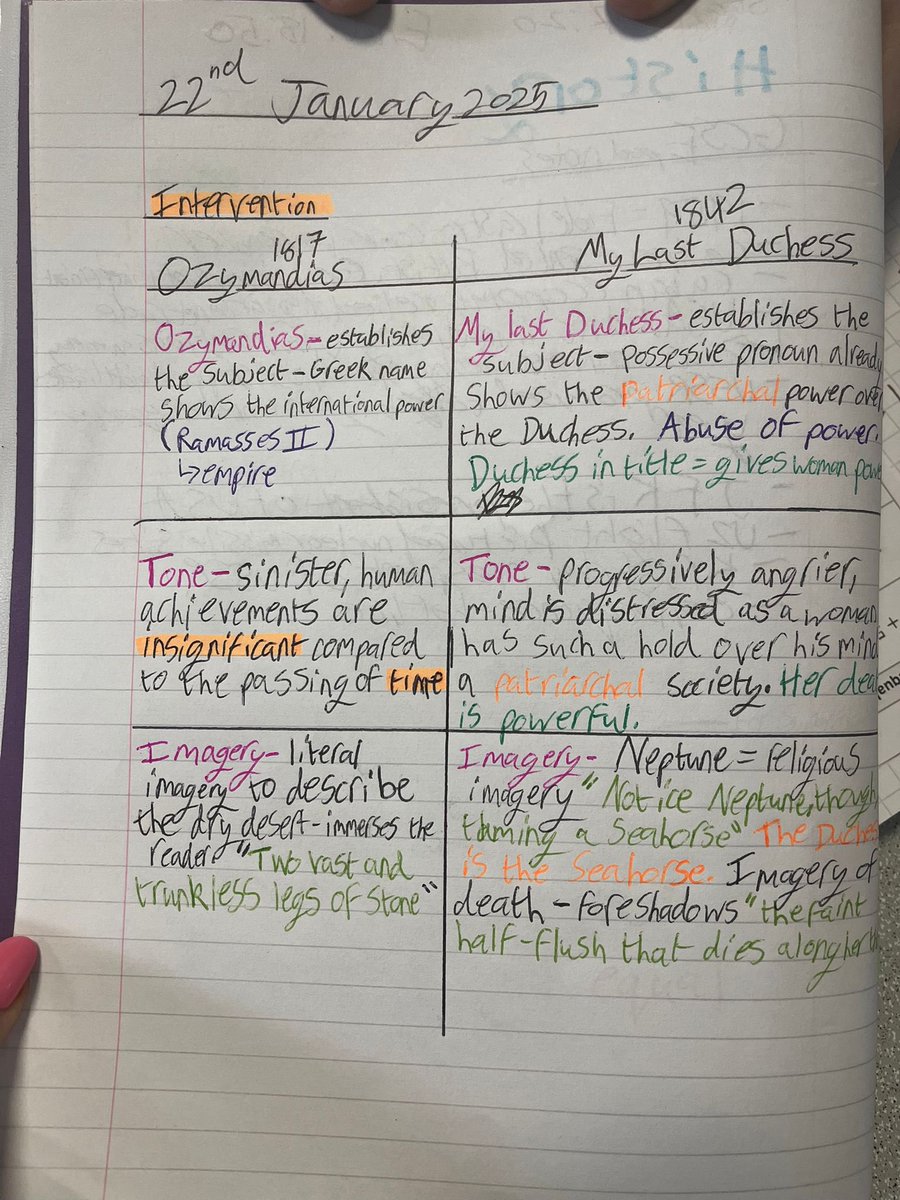 22nd January 2025
Intervention
1817
Ozymandias
Ozymandias - establishes
the subject - Greek name
shows the international power
(Ramasses II)
↳ empire
Tone - sinister, human
achievements are
insignificant compared
to the passing of time
Imagery - literal
imagery to describe
the dry desert - immerses the
reader "Two vast and
trunkless legs of stone"
1842
My Last Duchess
My last Duchess - establishes the
subject - possessive pronoun already
shows the patriarchal power over
the Duchess. Abuse of power.
Duchess in title = gives woman power
Tone - progressively angrier,
mind is distressed as a woman
has such a hold over his mind
a patriarchal society. Her
is powerful.
Imagery - Neptune = religious
imagery "Notice Neptune, though
taming a Seahorse" The Duchess
is the Seahorse. Imagery of
death - foreshadows "the faint
half-flush that dies along her